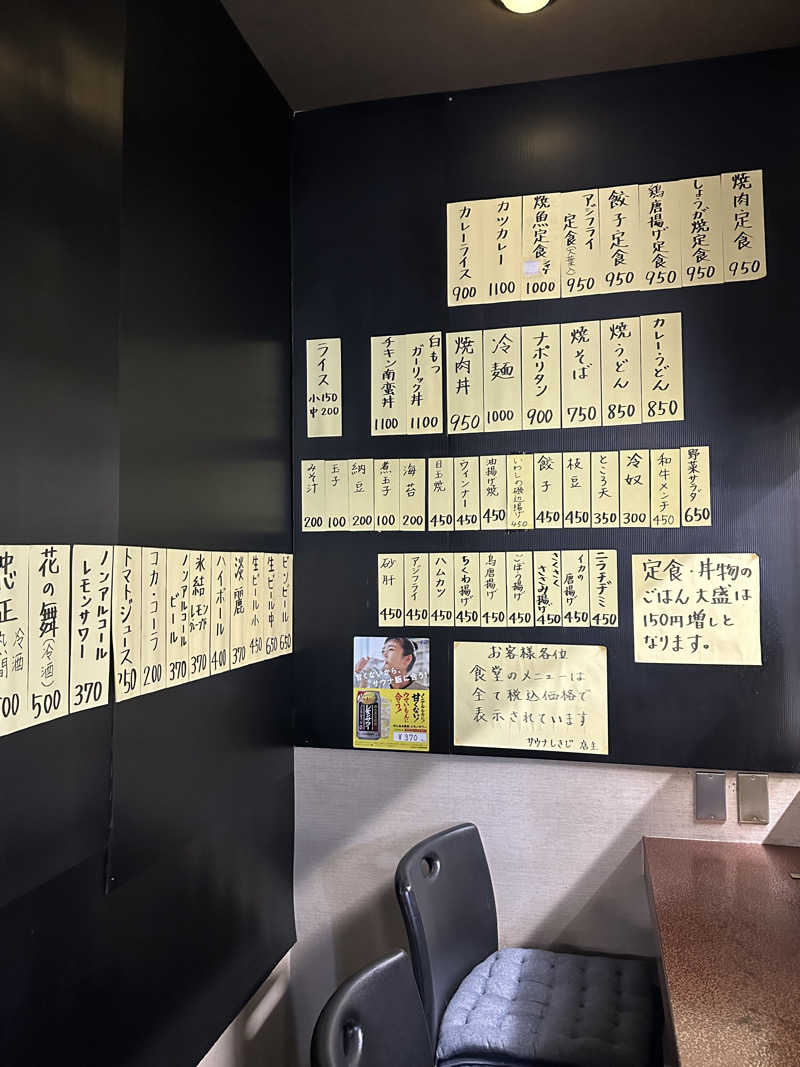 焼肉定食 950
しょうが焼定食 950
鶏唐揚げ定食 950
餃子定食 950
アジフライ定食(大葉入) 950
焼魚定食 1000
カツカレー 1100
カレーライス 900
カレーうどん 850
焼うどん 850
焼そば 750
ナポリタン 900
冷麺 1000
焼肉丼 950
白もつガーリック丼 1100
チキン南蛮丼 1100
ライス 小150 中200
野菜サラダ 650
和牛メンチ 450
冷奴 300
ところ天 350
枝豆 450
餃子 450
いわしの磯辺揚げ 450
油揚げ焼 450
ウィンナー 450
目玉焼 450
海苔 200
煮玉子 100
納豆 200
玉子 100
みそ汁 200
ニラチヂミ 450
イカの唐揚げ 450
さくさくささみ揚げ 450
ごぼう揚げ 450
鳥唐揚げ 450
ちくわ揚げ 450
ハムカツ 450
アジフライ 450
砂肝 450
定食・丼物の
ごはん大盛は
150円増しと
なります。
お客様各位
食堂のメニューは
全て税込価格で
表示されています
サウナしきじ 店主
甘くないから、
サウナ飯に合う!
甘くない!
¥370
ビンビール 650
生ビール中 650
生ビール小 450
淡麗 370
ハイボール 400
氷結 レモン 370
ノンアルコールビール 370
コカ・コーラ 200
トマトジュース 250
ノンアルコールレモンサワー 370
花の舞(冷酒) 500
冷酒